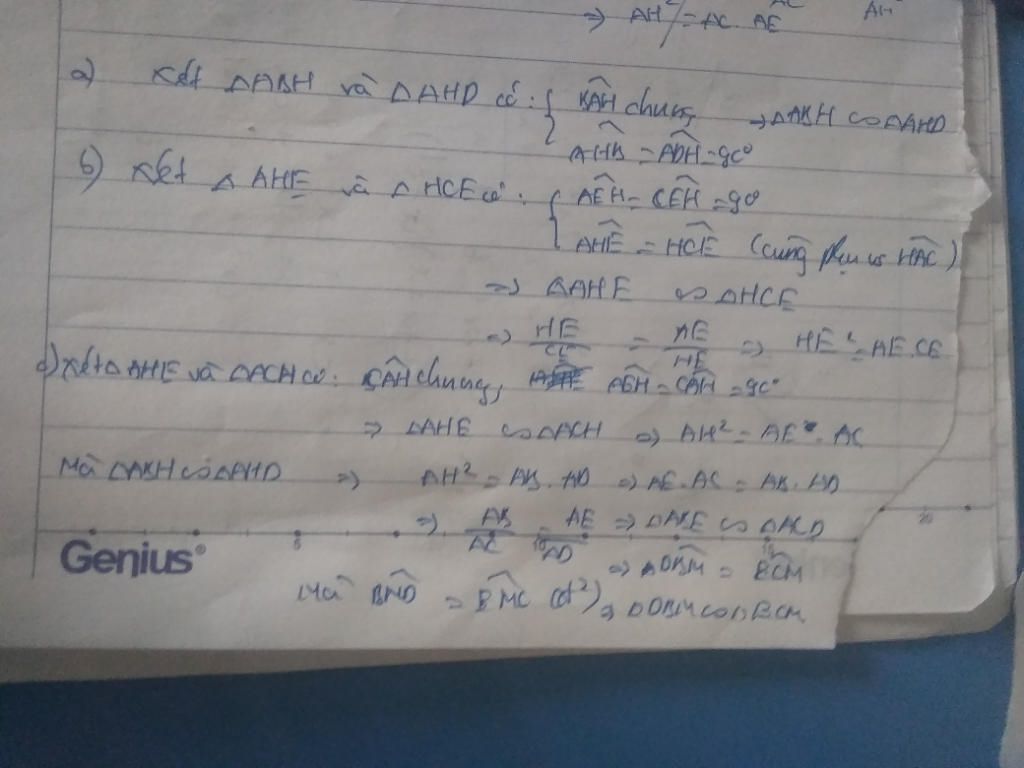 => AH² = AC. AE
a) Xét ΔABH và ΔAHD có : { BAH chung => ΔABH ∽ ΔAHD
AHB = ADH = 90°
b) Xét Δ AHE và Δ HCE có : { AEH = CEH = 90
AHE = HCE (cùng phụ vs HAC)
=> ΔAHE ∽ ΔHCE
=> HE/CE = AE/HE => HE² = AE.CE
c) Xét ΔAHE và ΔACH có : CAH chung, AEH = CAH = 90°
=> ΔAHE ∽ ΔACH => AH² = AE . AC
Mà ΔABH ∽ ΔAHD => AH² = AB. AD => AE.AC = AB. AD
=> AB/AC = AE/AD => ΔABE ∽ ΔACD
Genius
=> DBM = ECM
Mà BMD = EMC (đ²) => ΔDBM ∽ ΔECM